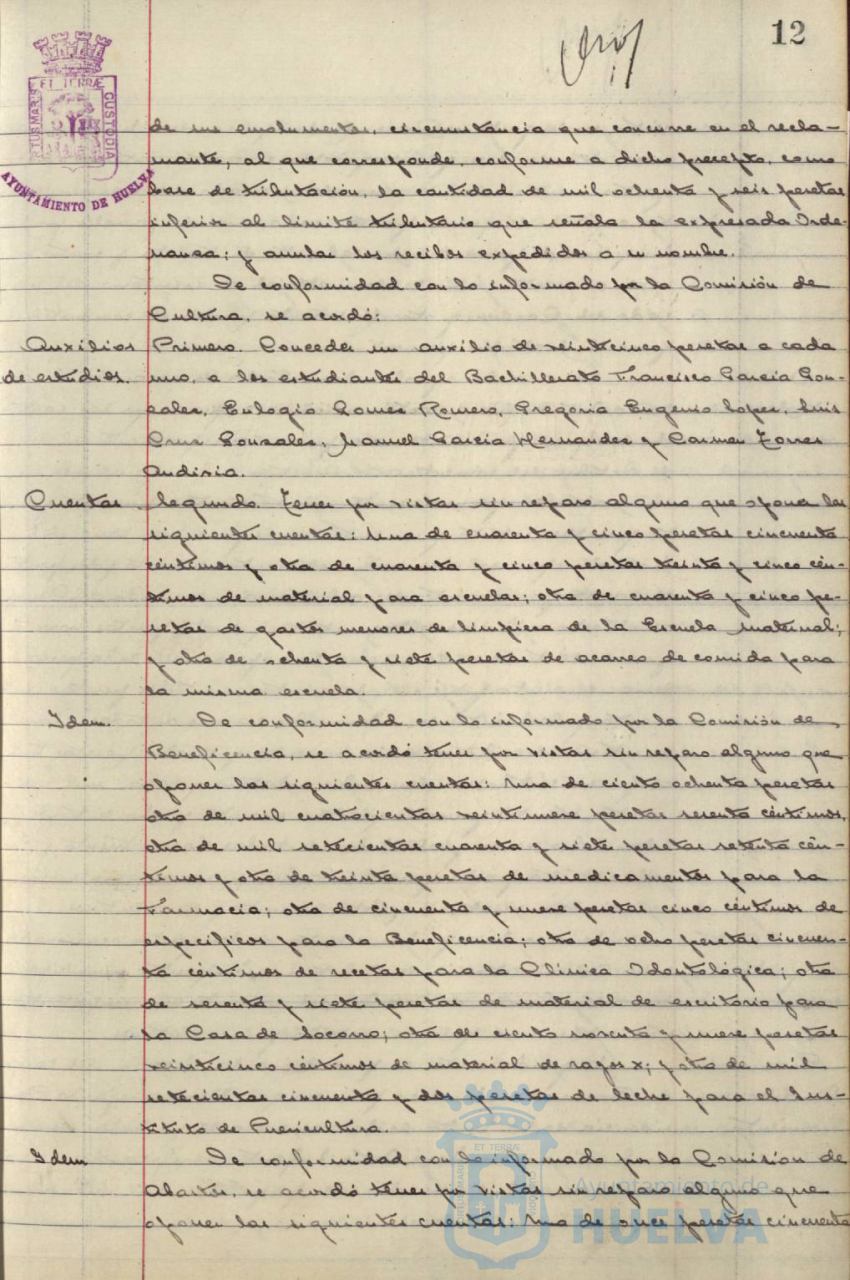 12
ET TERRÆ
PORTUS MARIS
CUSTODIA
AYUNTAMIENTO DE HUELVA
de sus emolumentos, circunstancia que concurre en el recla-
mante, al que corresponde, conforme a dicho precepto, como
base de tributación, la cantidad de mil ochenta y seis pesetas
inferior al límite tributario que señala la expresada Orde-
nanza; y anular los recibos expedidos a su nombre.
De conformidad con lo informado por la Comisión de
Cultura, se acordó:
Auxilios de estudios.
Primero. Conceder un auxilio de veinticinco pesetas a cada
uno, a los estudiantes del Bachillerato Francisco García Gon-
zales, Eulogio Gomes Romero, Gregoria Eugenio Lopes, Luis
Cruz Gonzales, Manuel García Hernandez y Carmen Torres
Cuentas.
Segundo. Tener por vistas sin reparo alguno que oponer las
siguientes cuentas: Una de cuarenta y cinco pesetas cincuenta
céntimos y otra de cuarenta y cinco pesetas treinta y cinco cén-
timos de material para escuelas; otra de cuarenta y cinco pe-
setas de gastos menores de limpieza de la Escuela maternal;
y otra de ochenta y siete pesetas de acarreo de comida para
la misma escuela.
Idem.
De conformidad con lo informado por la Comisión de
Beneficencia, se acordó tener por vistas sin reparo alguno que
oponer las siguientes cuentas: Una de ciento ochenta pesetas
otra de mil cuatrocientas veintinueve pesetas sesenta céntimos,
otra de mil setecientas cuarenta y siete pesetas setenta cén-
timos y otra de treinta pesetas de medicamentos para la
Farmacia; otra de cincuenta y nueve pesetas cinco céntimos de
específicos para la Beneficencia; otra de ocho pesetas cincuen-
ta céntimos de recetas para la Clínica Odontológica; otra
de sesenta y siete pesetas de material de escritorio para
la Casa de Socorro; otra de ciento noventa y nueve pesetas
veinticinco céntimos de material de rayos x; y otra de mil
setecientas cincuenta y dos pesetas de leche para el Ins-
tituto de Puericultura.
Idem
De conformidad con lo informado por la Comisión de
Abastos, se acordó tener por vistas sin reparo alguno que
oponer las siguientes cuentas: Una de once pesetas cincuenta
Ayuntamiento de
HUELVA